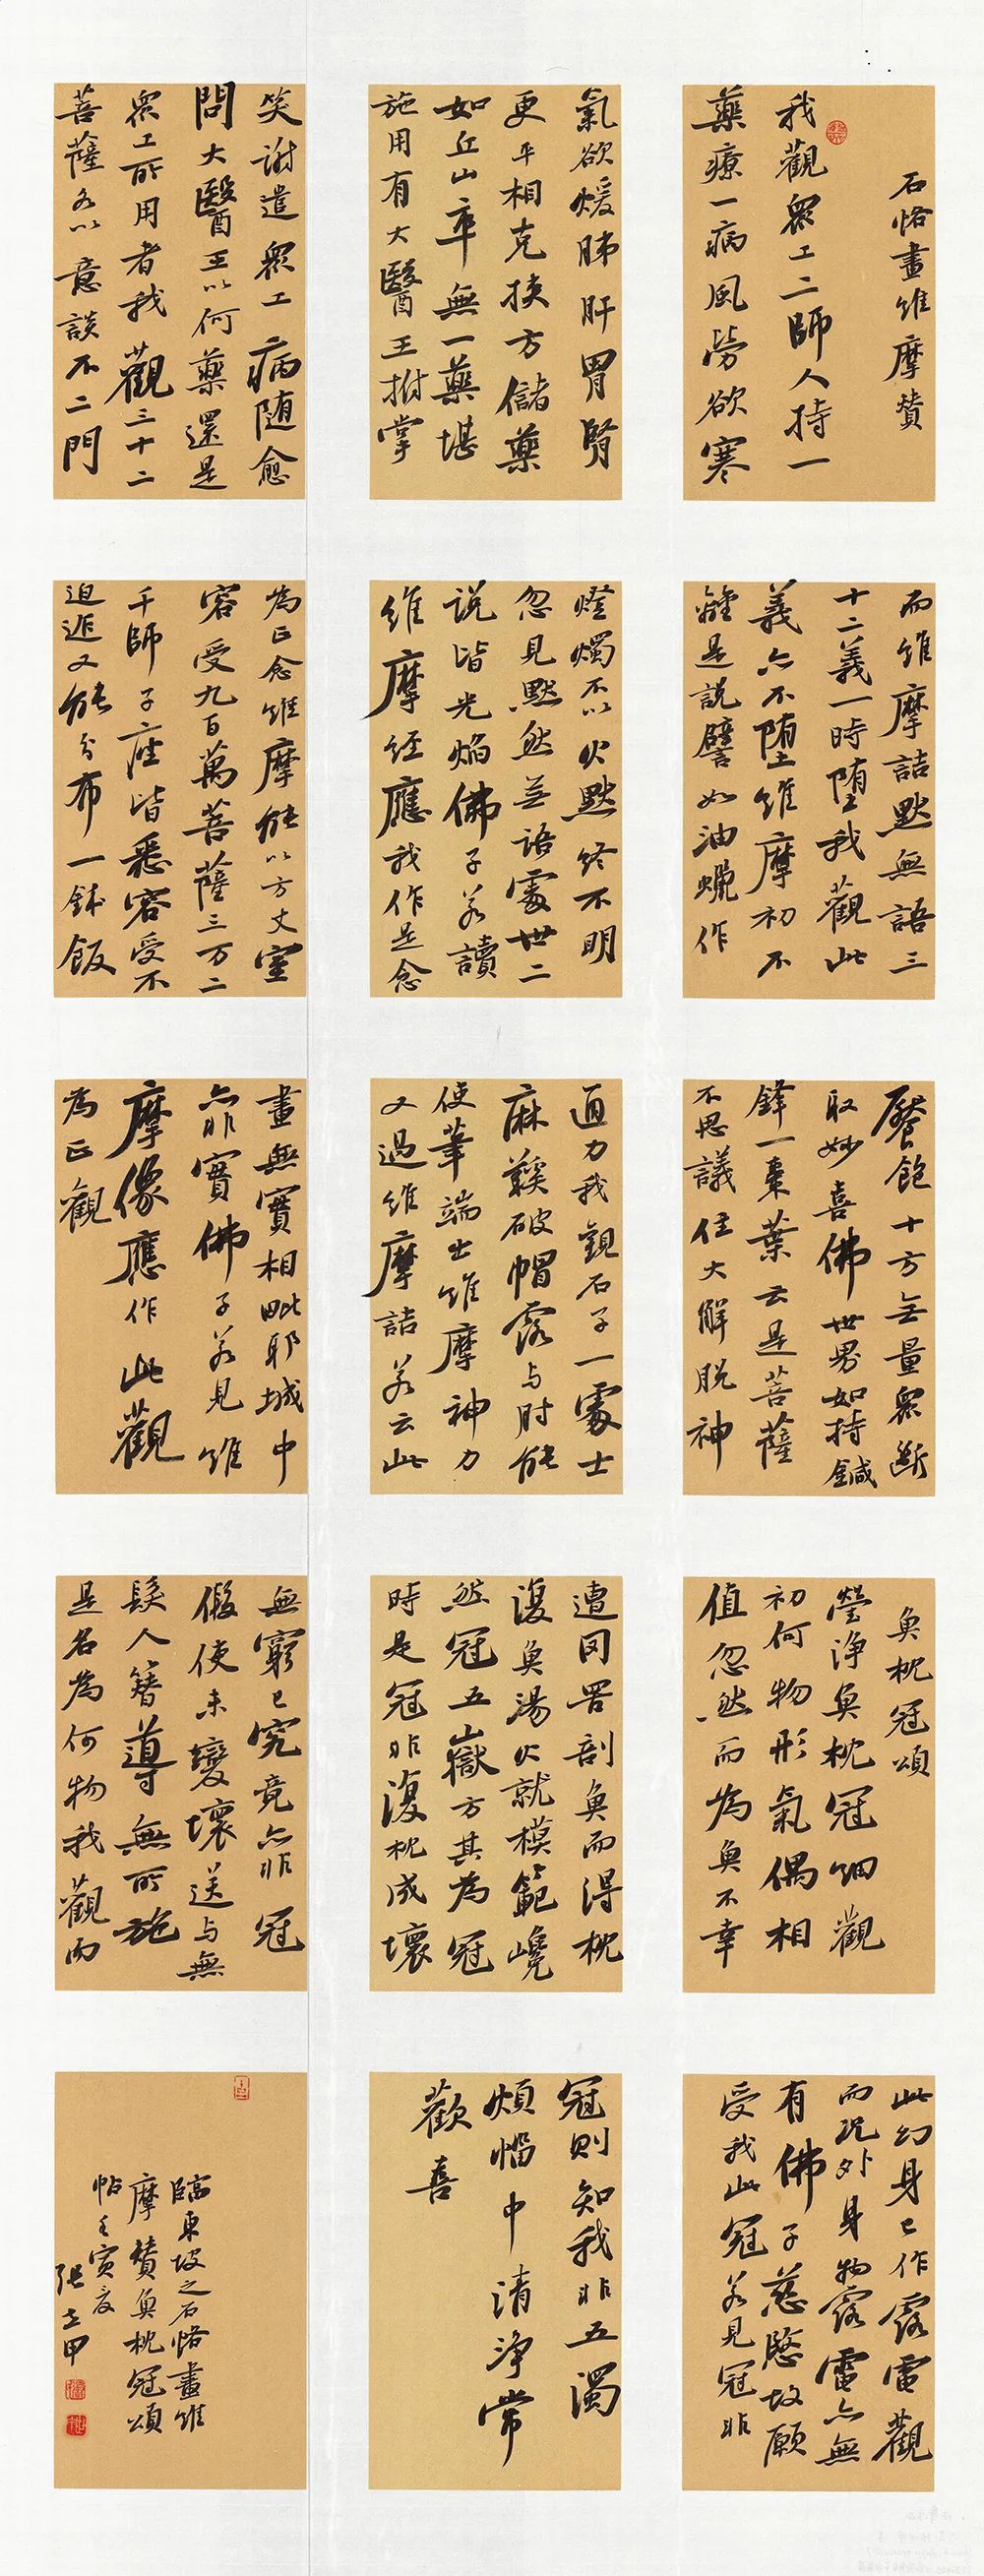 石恪畫維摩贊
我觀眾工二師人持一
藥療一病風勞欲寒
氣欲煖肺肝胃腎
更平相克挾方儲藥
如丘山卒無一藥堪
施用有大醫王拊掌
笑謝遣眾工病随愈
問大醫王以何藥還是
眾工所用者我觀三十二
菩薩各以意談不二門
而維摩詰默無語三
十二義一時堕我觀此
義亦不堕維摩初不
離是説譬如油蠟作
燈燭不以火點終不明
忽見默然無語處世二
説皆光焰佛子若讀
維摩經應我作是念
為正念維摩能以方丈室
容受九百萬菩薩三万二
千師子座皆悉容受不
迫迮又能分布一鉢飯
饜飽十方無量眾斷
取妙喜佛世界如持鍼
鋒一棗葉云是菩薩
不思議住大解脱神
通力我觀石子一處士
麻鞵破帽露与肘能
使筆端出維摩神力
又過維摩詰若云此
畫無實相毗耶城中
亦非實佛子若見維
摩像應作此觀
為正觀
魚枕冠頌
瑩净魚枕冠細觀
初何物形氣偶相
值忽然而為魚不幸
遭罔罟剖魚而得枕
復魚湯火就模範巉
然冠五嶽方其為冠
時是冠非復枕成壞
無窮已究竟亦非冠
假使未變壞送与無
髮人簪導無所施
是名為何物我觀而
此幻身已作露電觀
而况外身物露電亦無
有佛子慈愍故願
受我此冠若見冠非
冠則知我非五濁
煩惱中清净常
歡喜
臨東坡之石恪畫維
摩贊魚枕冠頌
帖壬寅夏
張志甲